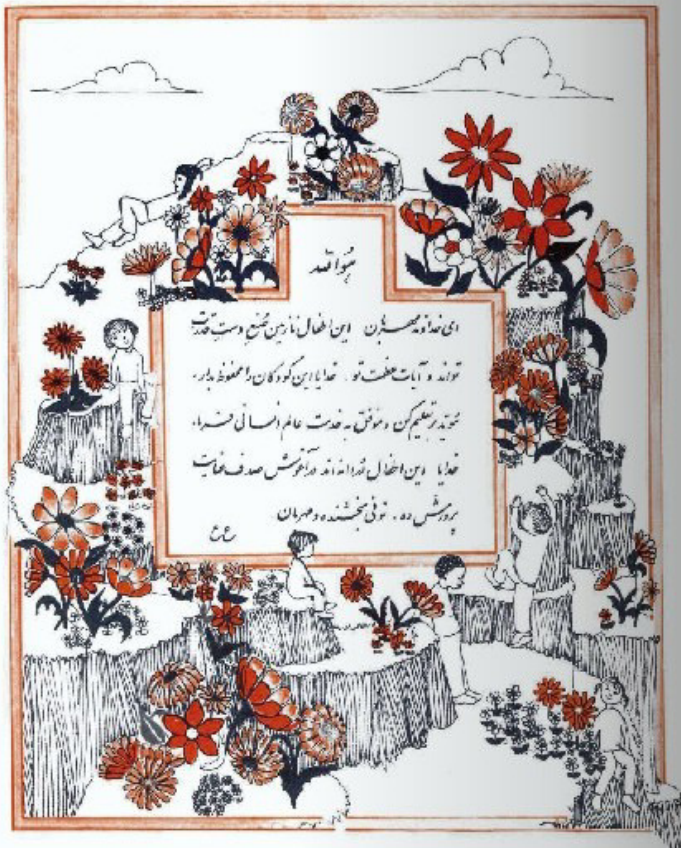 هوالله
ای خداوند مهربان این اطفال نازنین صنع دست قدرت
تواند و آیات عظمت تو. خدایا این کودکان را محفوظ بدار،
مؤید بر تعلیم کن و موفق به خدمت عالم انسانی فرما،
خدایا این اطفال دُردانه‌اند در آغوش صدف عنایت
پرورش ده، توئی بخشنده و مهربان
ع ع